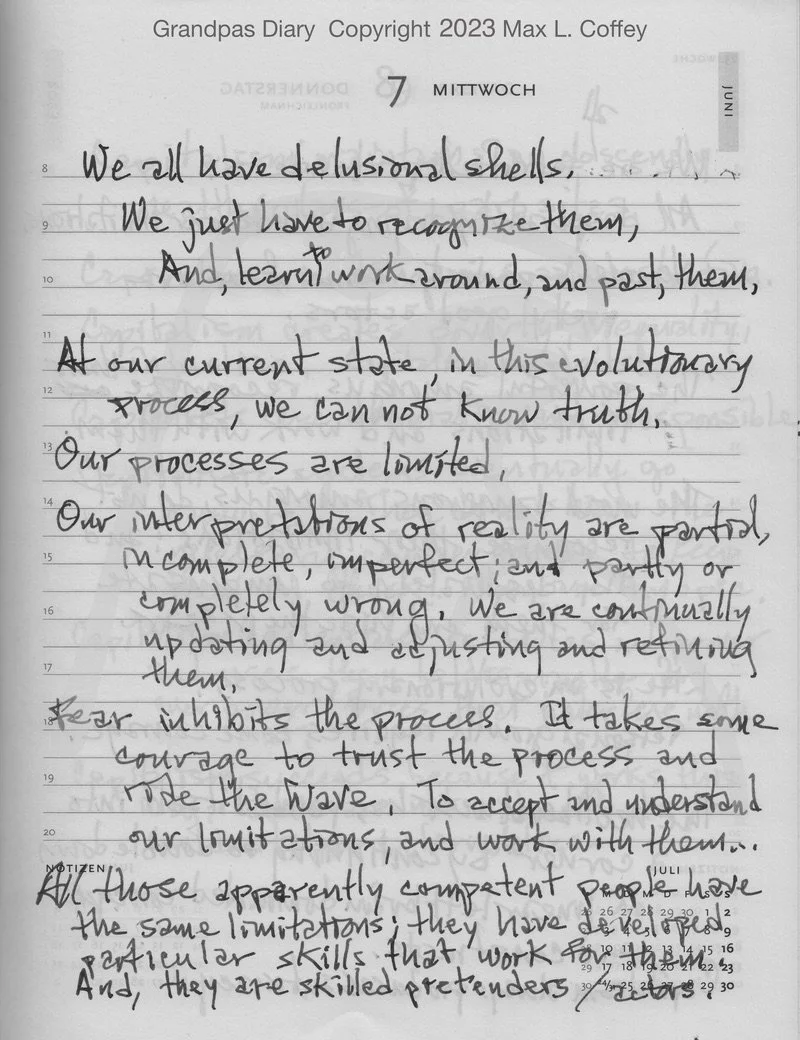 Grandpas Diary Copyright 2023 Max L. Coffey
7 MITTWOCH
JUNI
8 We all have delusional shells.
9 We just have to recognize them,
10 And, learn to work around, and past, them,
11
At our current state, in this evolutionary
12 process, we can not know truth.
13 Our processes are limited,
14 Our interpretations of reality are partial,
15 incomplete, imperfect; and partly or
16 completely wrong. We are continually
updating and adjusting and refining
17 them.
18 Fear inhibits the process. It takes some
courage to trust the process and
19 ride the wave. To accept and understand
20 our limitations, and work with them...
NOTIZEN JULI
All those apparently competent people have
the same limitations; they have developed
particular skills that work for them.
And, they are skilled pretenders / actors.